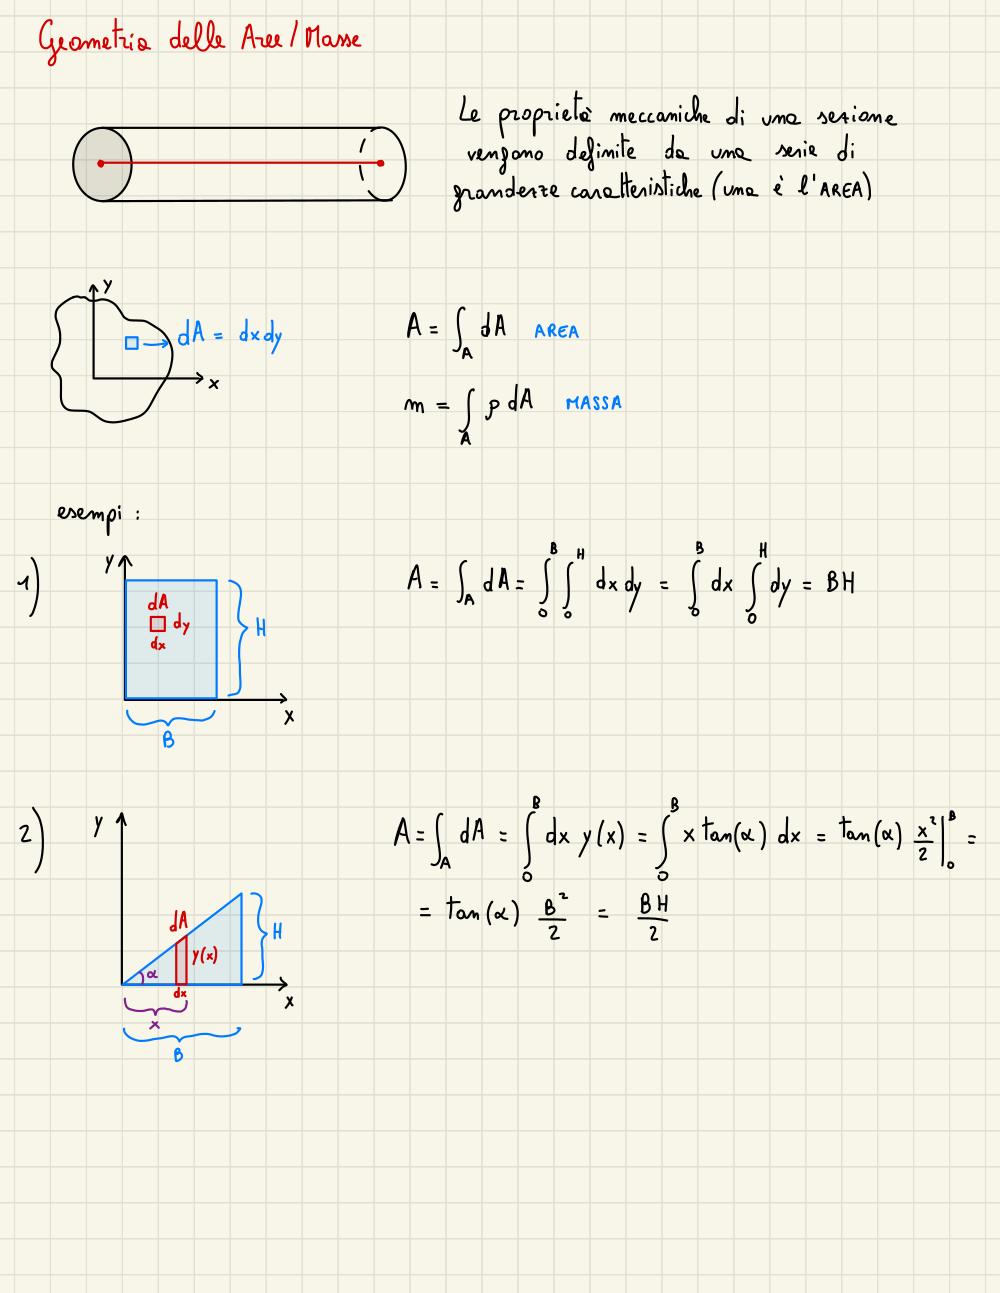 Geometria delle Aree/Masse
Le proprietà meccaniche di una sezione
vengono definite da una serie di
grandezze caratteristiche (una è l'AREA)
y
dA = dxdy
x
A = ∫_A dA AREA
m = ∫_A ρ dA MASSA
esempi :
1)
y
dA
dy
dx
H
x
B
A = ∫_A dA = ∫_0^B ∫_0^H dx dy = ∫_0^B dx ∫_0^H dy = BH
2)
y
dA
y(x)
H
α
dx
x
x
B
A = ∫_A dA = ∫_0^B dx y(x) = ∫_0^B x tan(α) dx = tan(α) x²/2 |_0^B =
= tan(α) B²/2 = BH/2